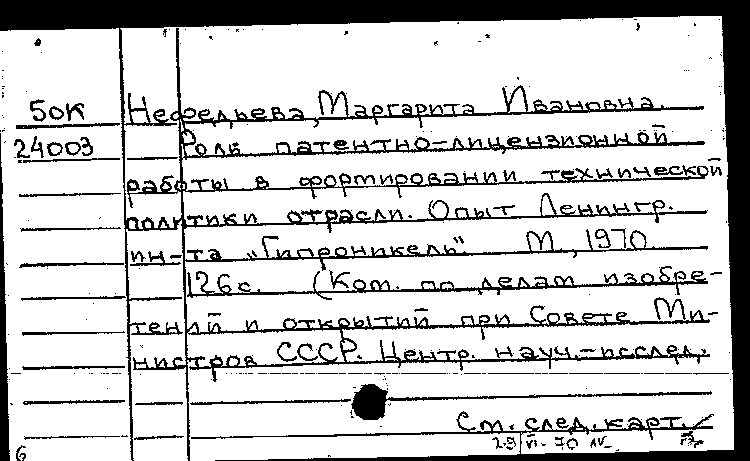 50К Нефедьева, Маргарита Ивановна.
24003 Роль патентно-лицензионной
работы в формировании технической
политики отрасли. Опыт Ленингр.
ин-та „Гипроникель“. М., 1970
126 с. (Ком. по делам изобре-
тений и открытий при Совете Ми-
нистров СССР. Центр. науч.-исслед.
См. след. карт.
29 VI-70
6